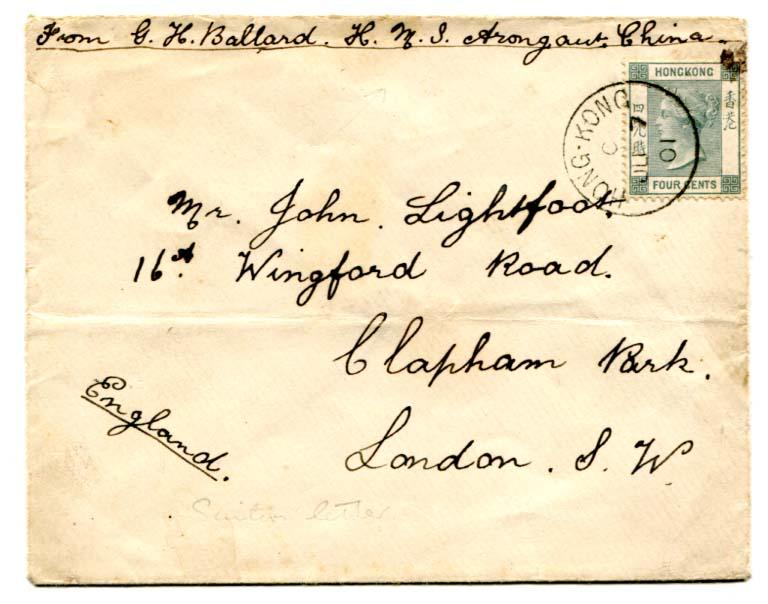 From G. H. Ballard. H. M. S. Arongaut. China.
HONGKONG
香港
四先時
FOUR CENTS
HONG-KONG
C
JU 7
01
Mr. John Lightfoot.
16A Wingford Road.
Clapham Park.
London. S. W
England.
letter